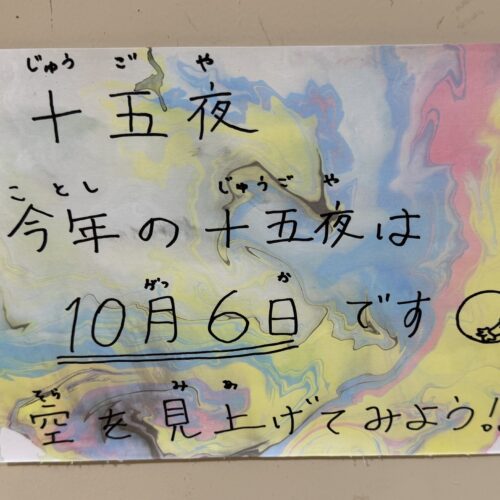 じゅうごや
十五夜
ことし じゅうごや
今年の十五夜は
がつ か
10月6日です
そら みあ
空を見上げてみよう!!